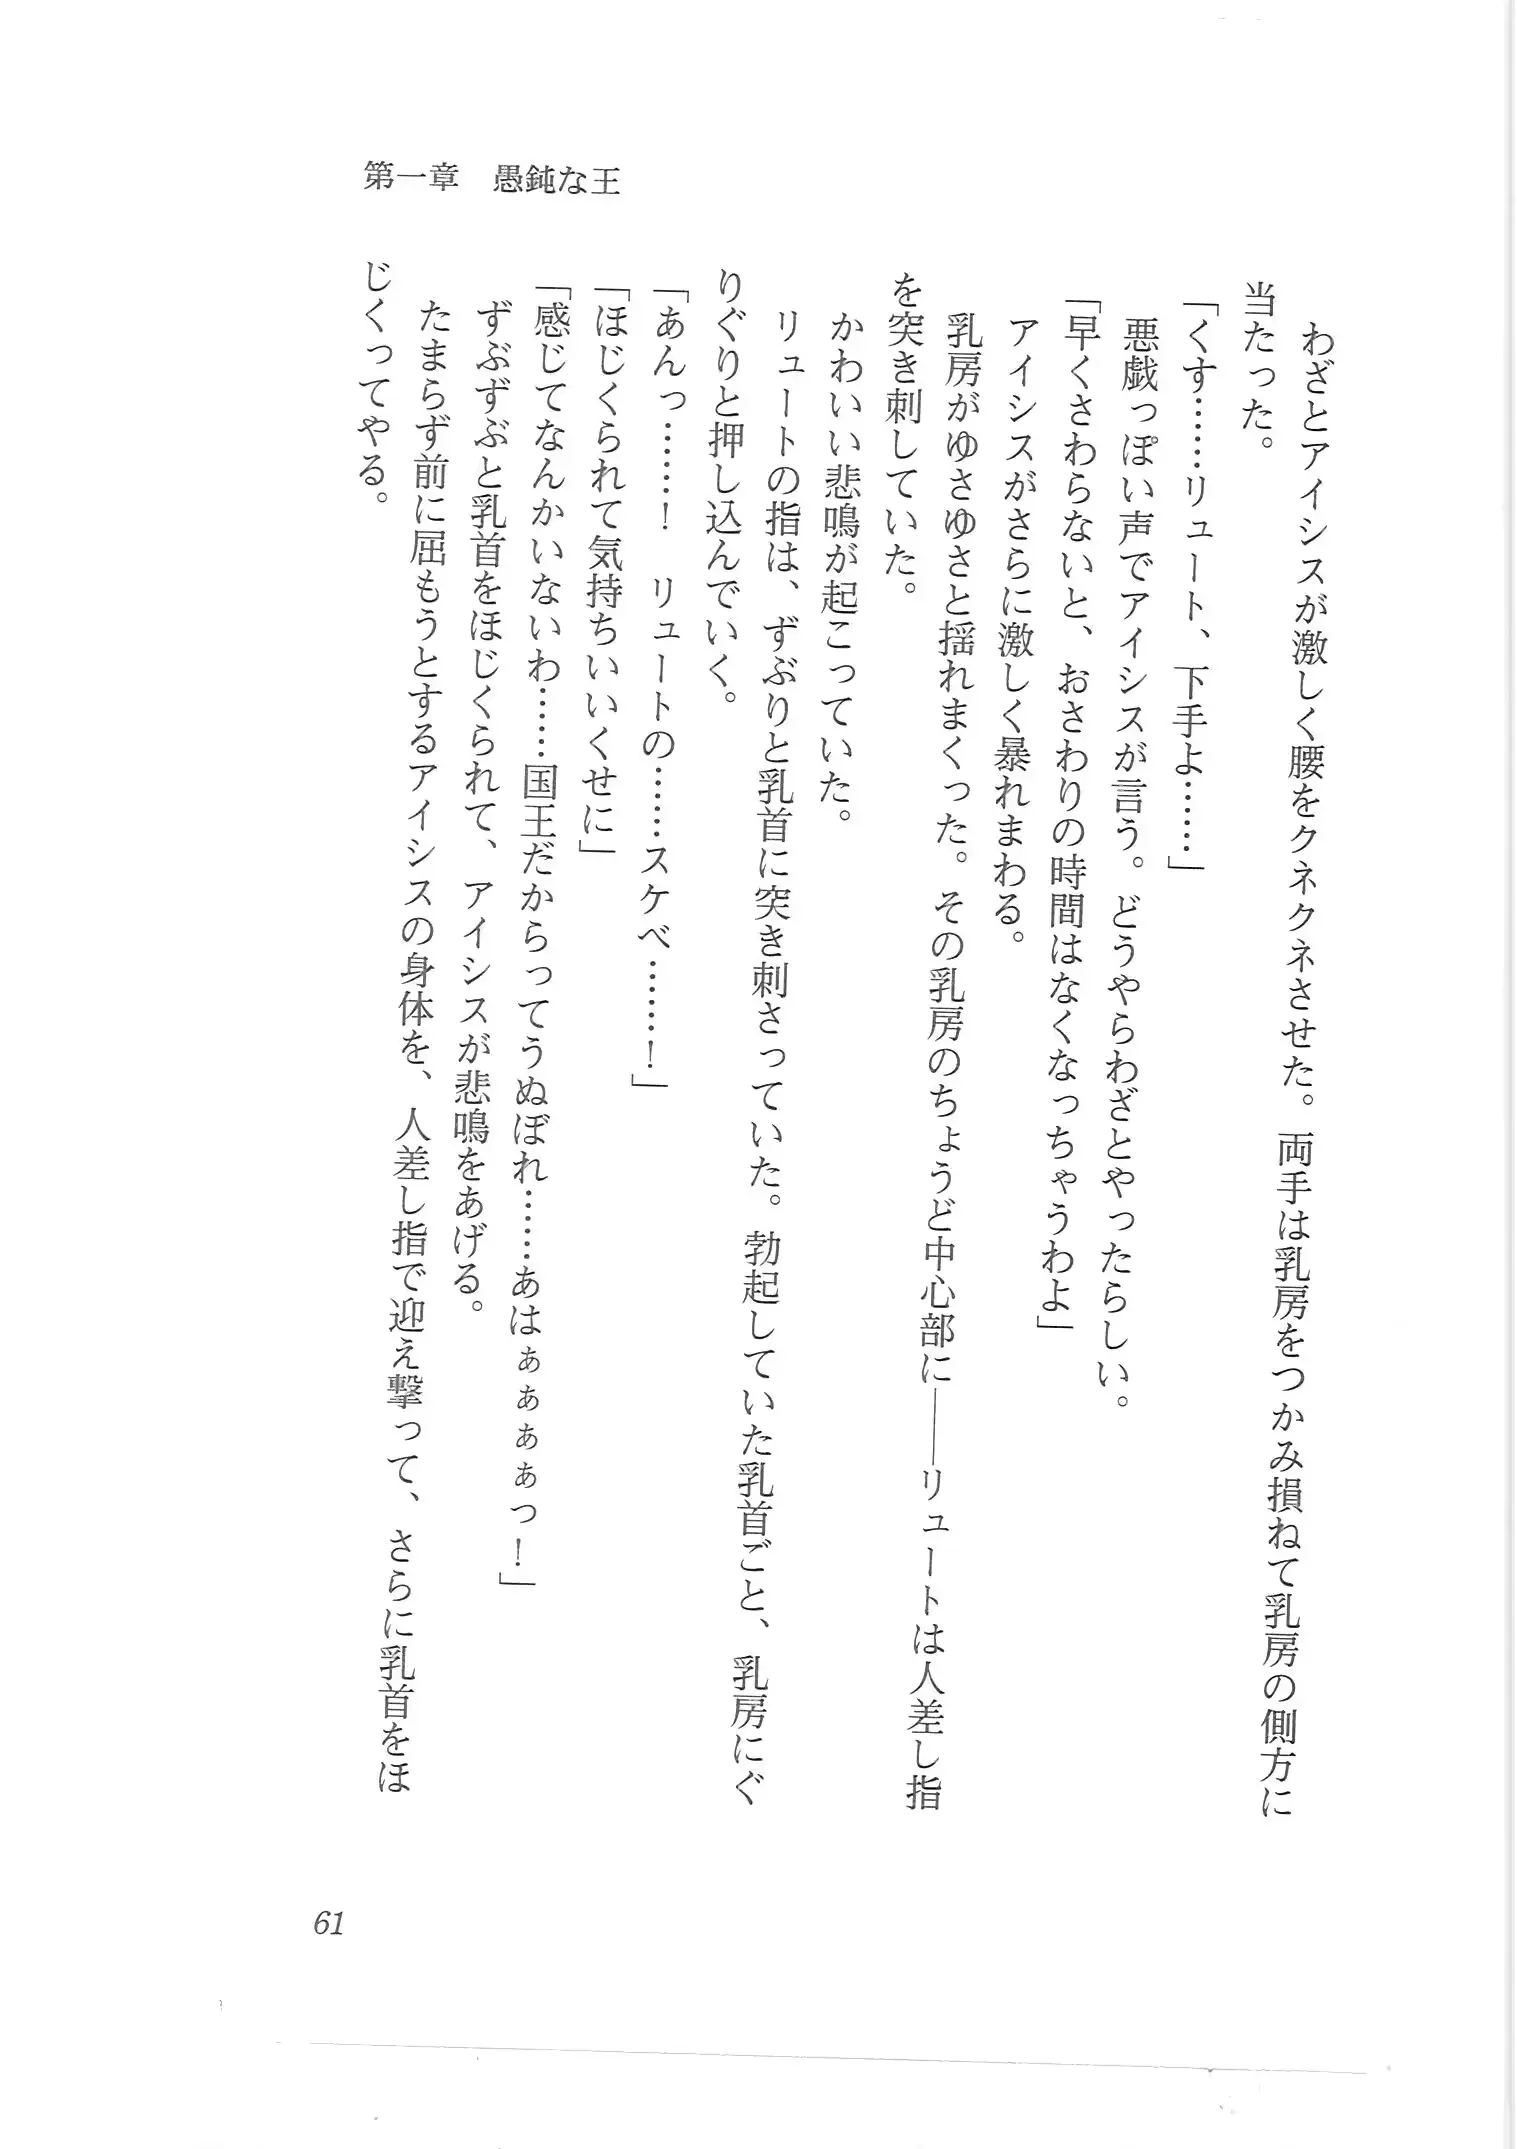 第一章　愚鈍な王
わざとアイシスが激しく腰をクネクネさせた。両手は乳房をつかみ損ねて乳房の側方に
当たった。
「くす……リュート、下手よ……」
悪戯っぽい声でアイシスが言う。どうやらわざとやったらしい。
「早くさわらないと、おさわりの時間はなくなっちゃうわよ」
アイシスがさらに激しく暴れまわる。
乳房がゆさゆさと揺れまくった。その乳房のちょうど中心部に――リュートは人差し指
を突き刺していた。
かわいい悲鳴が起こっていた。
リュートの指は、ずぶりと乳首に突き刺さっていた。勃起していた乳首ごと、乳房にぐ
りぐりと押し込んでいく。
「あんっ……！　リュートの……スケベ……！」
「ほじくられて気持ちいいくせに」
「感じてなんかいないわ……国王だからってうぬぼれ……あはぁぁぁぁっ！」
ずぶずぶと乳首をほじくられて、アイシスが悲鳴をあげる。
たまらず前に屈もうとするアイシスの身体を、人差し指で迎え撃って、さらに乳首をほ
じくってやる。
61